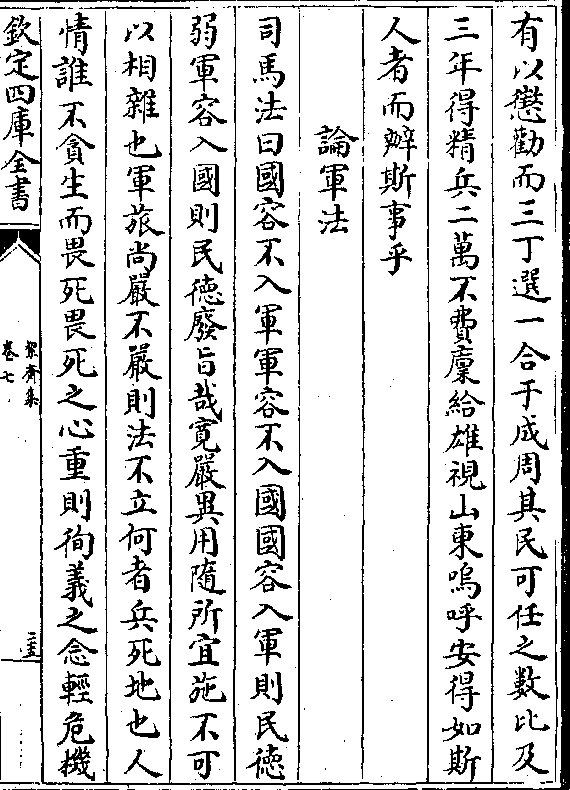 有以懲勸而三丁選一合于成周其民可任之數比及
三年得精兵二萬不費廩給雄視山東嗚呼安得如斯
人者而辦斯事乎
論軍法
司馬法曰國容不入軍軍容不入國國容入軍則民德
弱軍容入國則民德廢旨哉寛嚴異用隨所宜施不可
以相雜也軍旅尚嚴不嚴則法不立何者兵死地也人
情誰不貪生而畏死畏死之心重則徇義之念輕危機
欽定四庫全書
絜齋集
卷七